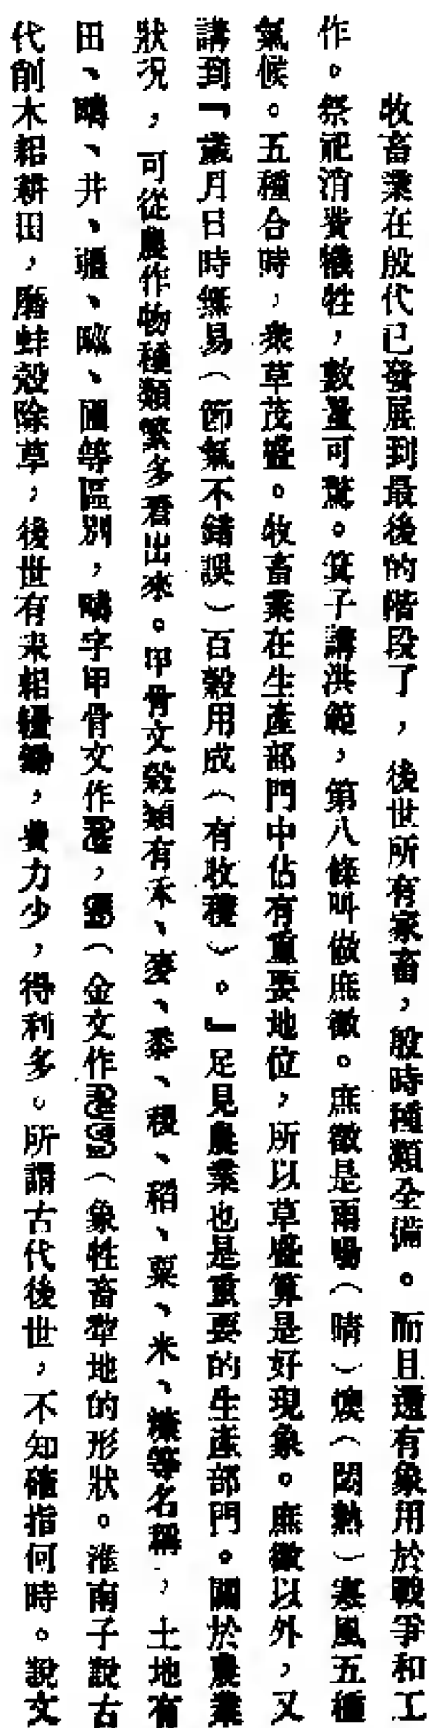 牧畜業在殷代已發展到最後的階段了，後世所有家畜，殷時種類全備。而且還有象用於戰爭和工
作。祭祀消費犧牲，數量可驚。箕子講洪範，第八條叫做庶徵。庶徵是雨暘（晴）燠（悶熱）寒風五種
氣候。五種合時，衆草茂盛。牧畜業在生產部門中佔有重要地位，所以草盛算是好現象。庶徵以外，又
講到『歲月日時無易（節氣不錯誤）百穀用成（有收穫）。』足見農業也是重要的生產部門。關於農業
狀況，可從農作物種類繁多看出來。甲骨文穀類有禾、麥、黍、稷、稻、粟、米、等名稱，土地有
田、疇、井、疆、圃等區別，疇字甲骨文作，（金文作（象牲畜犂地的形狀。淮南子說古
代削木耜耕田，磨蚌殼除草，後世有耒耜耰鋤，費力少，得利多。所謂古代後世，不知確指何時。說文